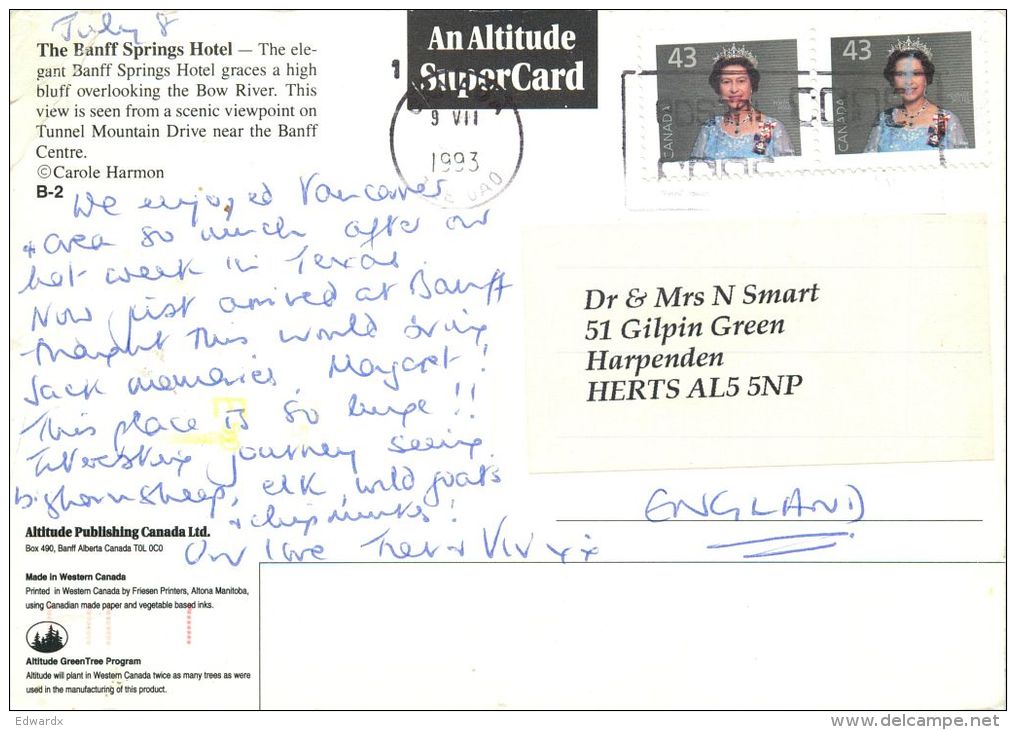 July 8
The Banff Springs Hotel — The ele-
gant Banff Springs Hotel graces a high
bluff overlooking the Bow River. This
view is seen from a scenic viewpoint on
Tunnel Mountain Drive near the Banff
Centre.
©Carole Harmon
B-2
An Altitude
SuperCard
9 VII
1993
43
CANADA
43
CANADA
We enjoyed Vancouver
+ area so much after our
hot week in Texas.
Now just arrived at Banff
thought this would bring
back memories, Margaret!
This place is so huge!!
Interesting journey seeing
bighorn sheep, elk, wild goats
+ chipmunks!
Our love Trev + Viv xx
Dr & Mrs N Smart
51 Gilpin Green
Harpenden
HERTS AL5 5NP
ENGLAND
Altitude Publishing Canada Ltd.
Box 490, Banff Alberta Canada T0L 0C0
Made in Western Canada
Printed in Western Canada by Friesen Printers, Altona Manitoba,
using Canadian made paper and vegetable based inks.
Altitude GreenTree Program
Altitude will plant in Western Canada twice as many trees as were
used in the manufacturing of this product.
Edwardx
www.delcampe.net